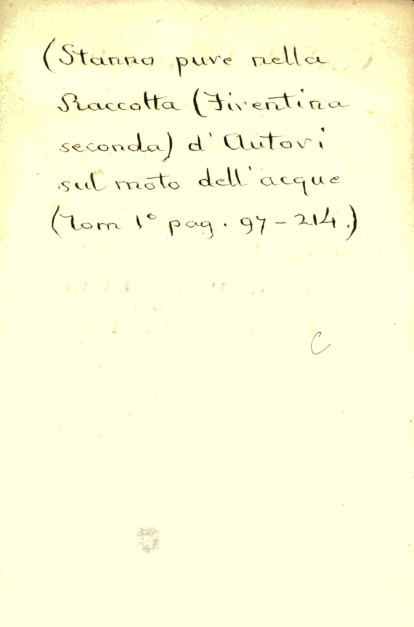 (Stanno pure nella
Raccolta (Fiorentina
seconda) d'Autori
sul moto dell'acque
(Tom 1° pag. 97-214.)
C